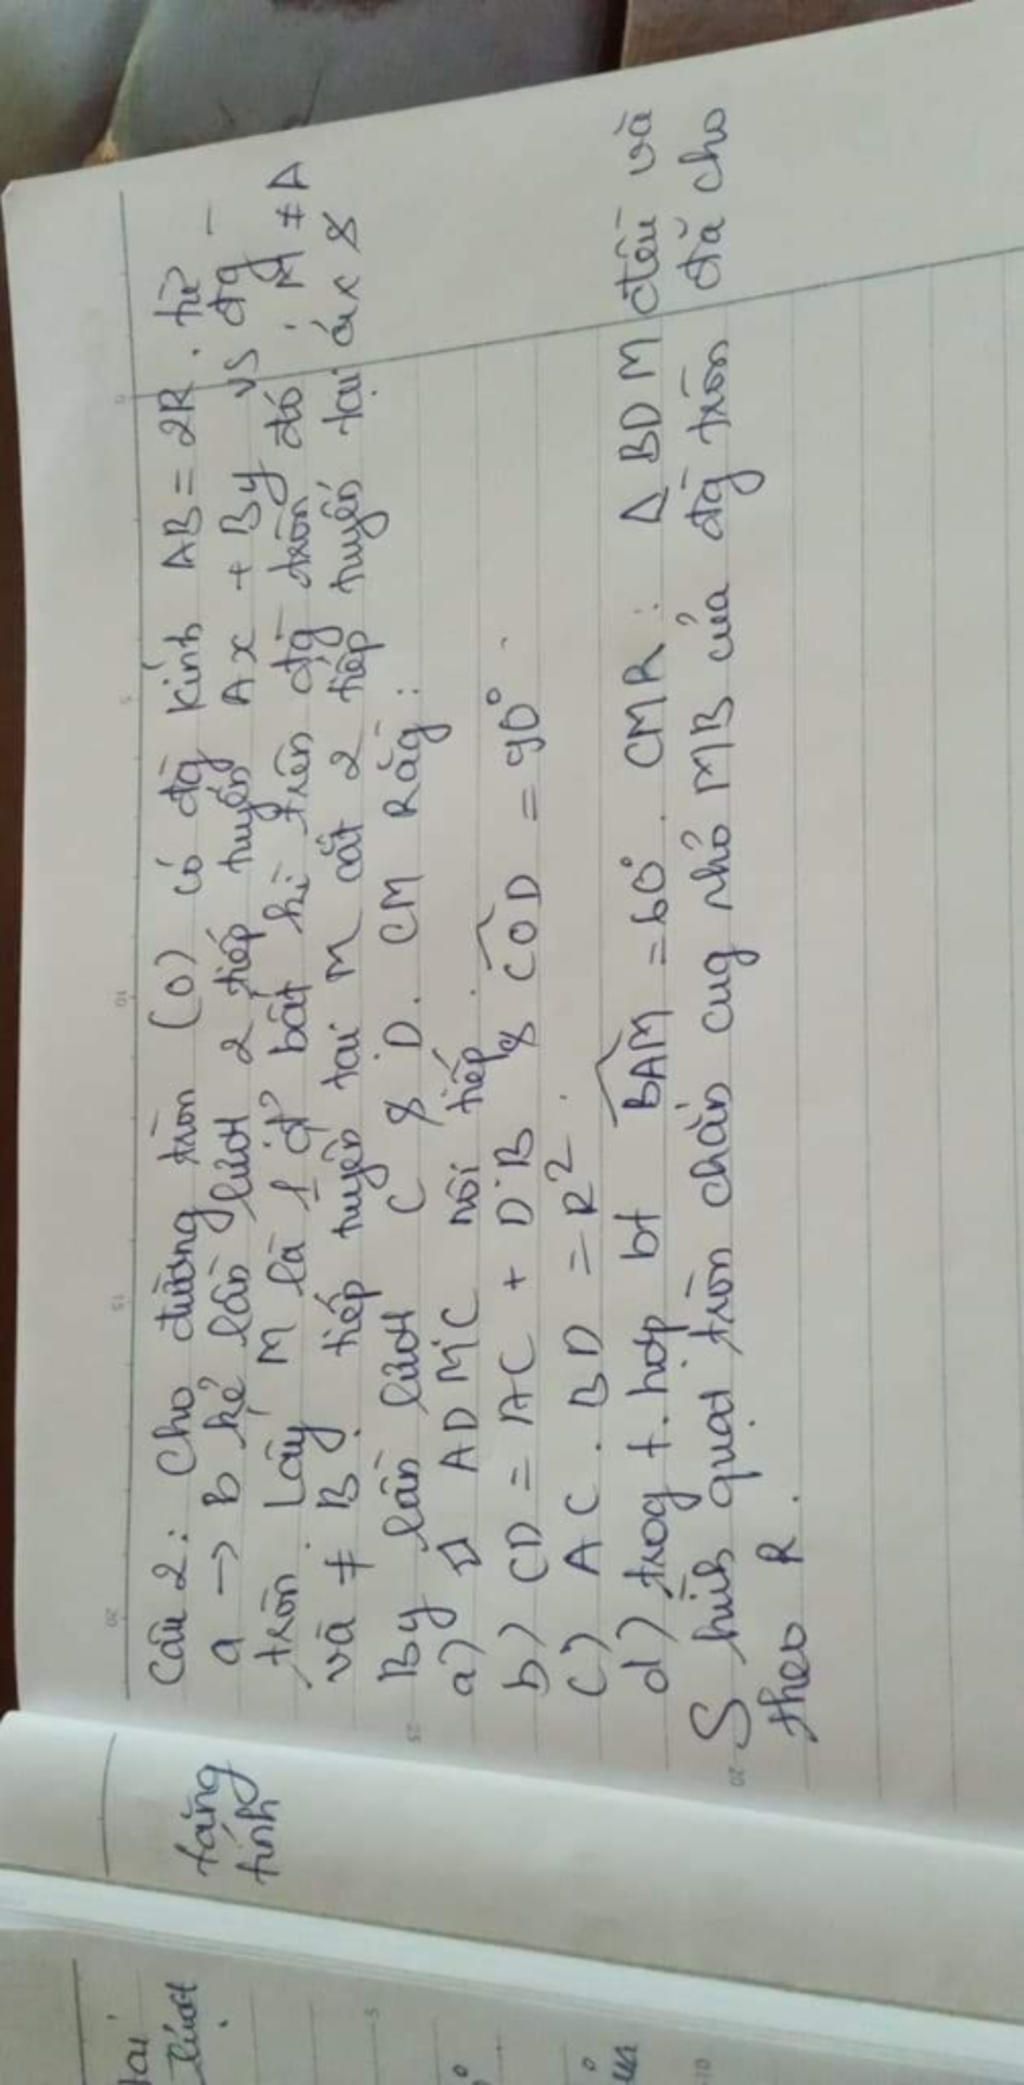 Câu 2: Cho đường tròn (O) có đg̅ kính AB = 2R. từ
a → B kẻ lần lượt 2 tiếp tuyến Ax + By vs đg̅
tròn. Lấy M là 1 đ' bất kì trên đg̅ tròn đó; M ≠ A
và ≠ B. tiếp tuyến tại M cắt 2 tiếp tuyến tại ax &
By lần lượt C & D. CM Rằg̅:
a) ◇ ADMC nội tiếp.
b) CD = AC + DB & COD = 90°.
c) AC. BD = R².
d) trog t.hợp bt BAM = 60°. CMR: Δ BDM đều và
S hình quạt tròn chắn cug nhỏ MB của đg̅ tròn đã cho
theo R.
tăng
tính
tại
lượt